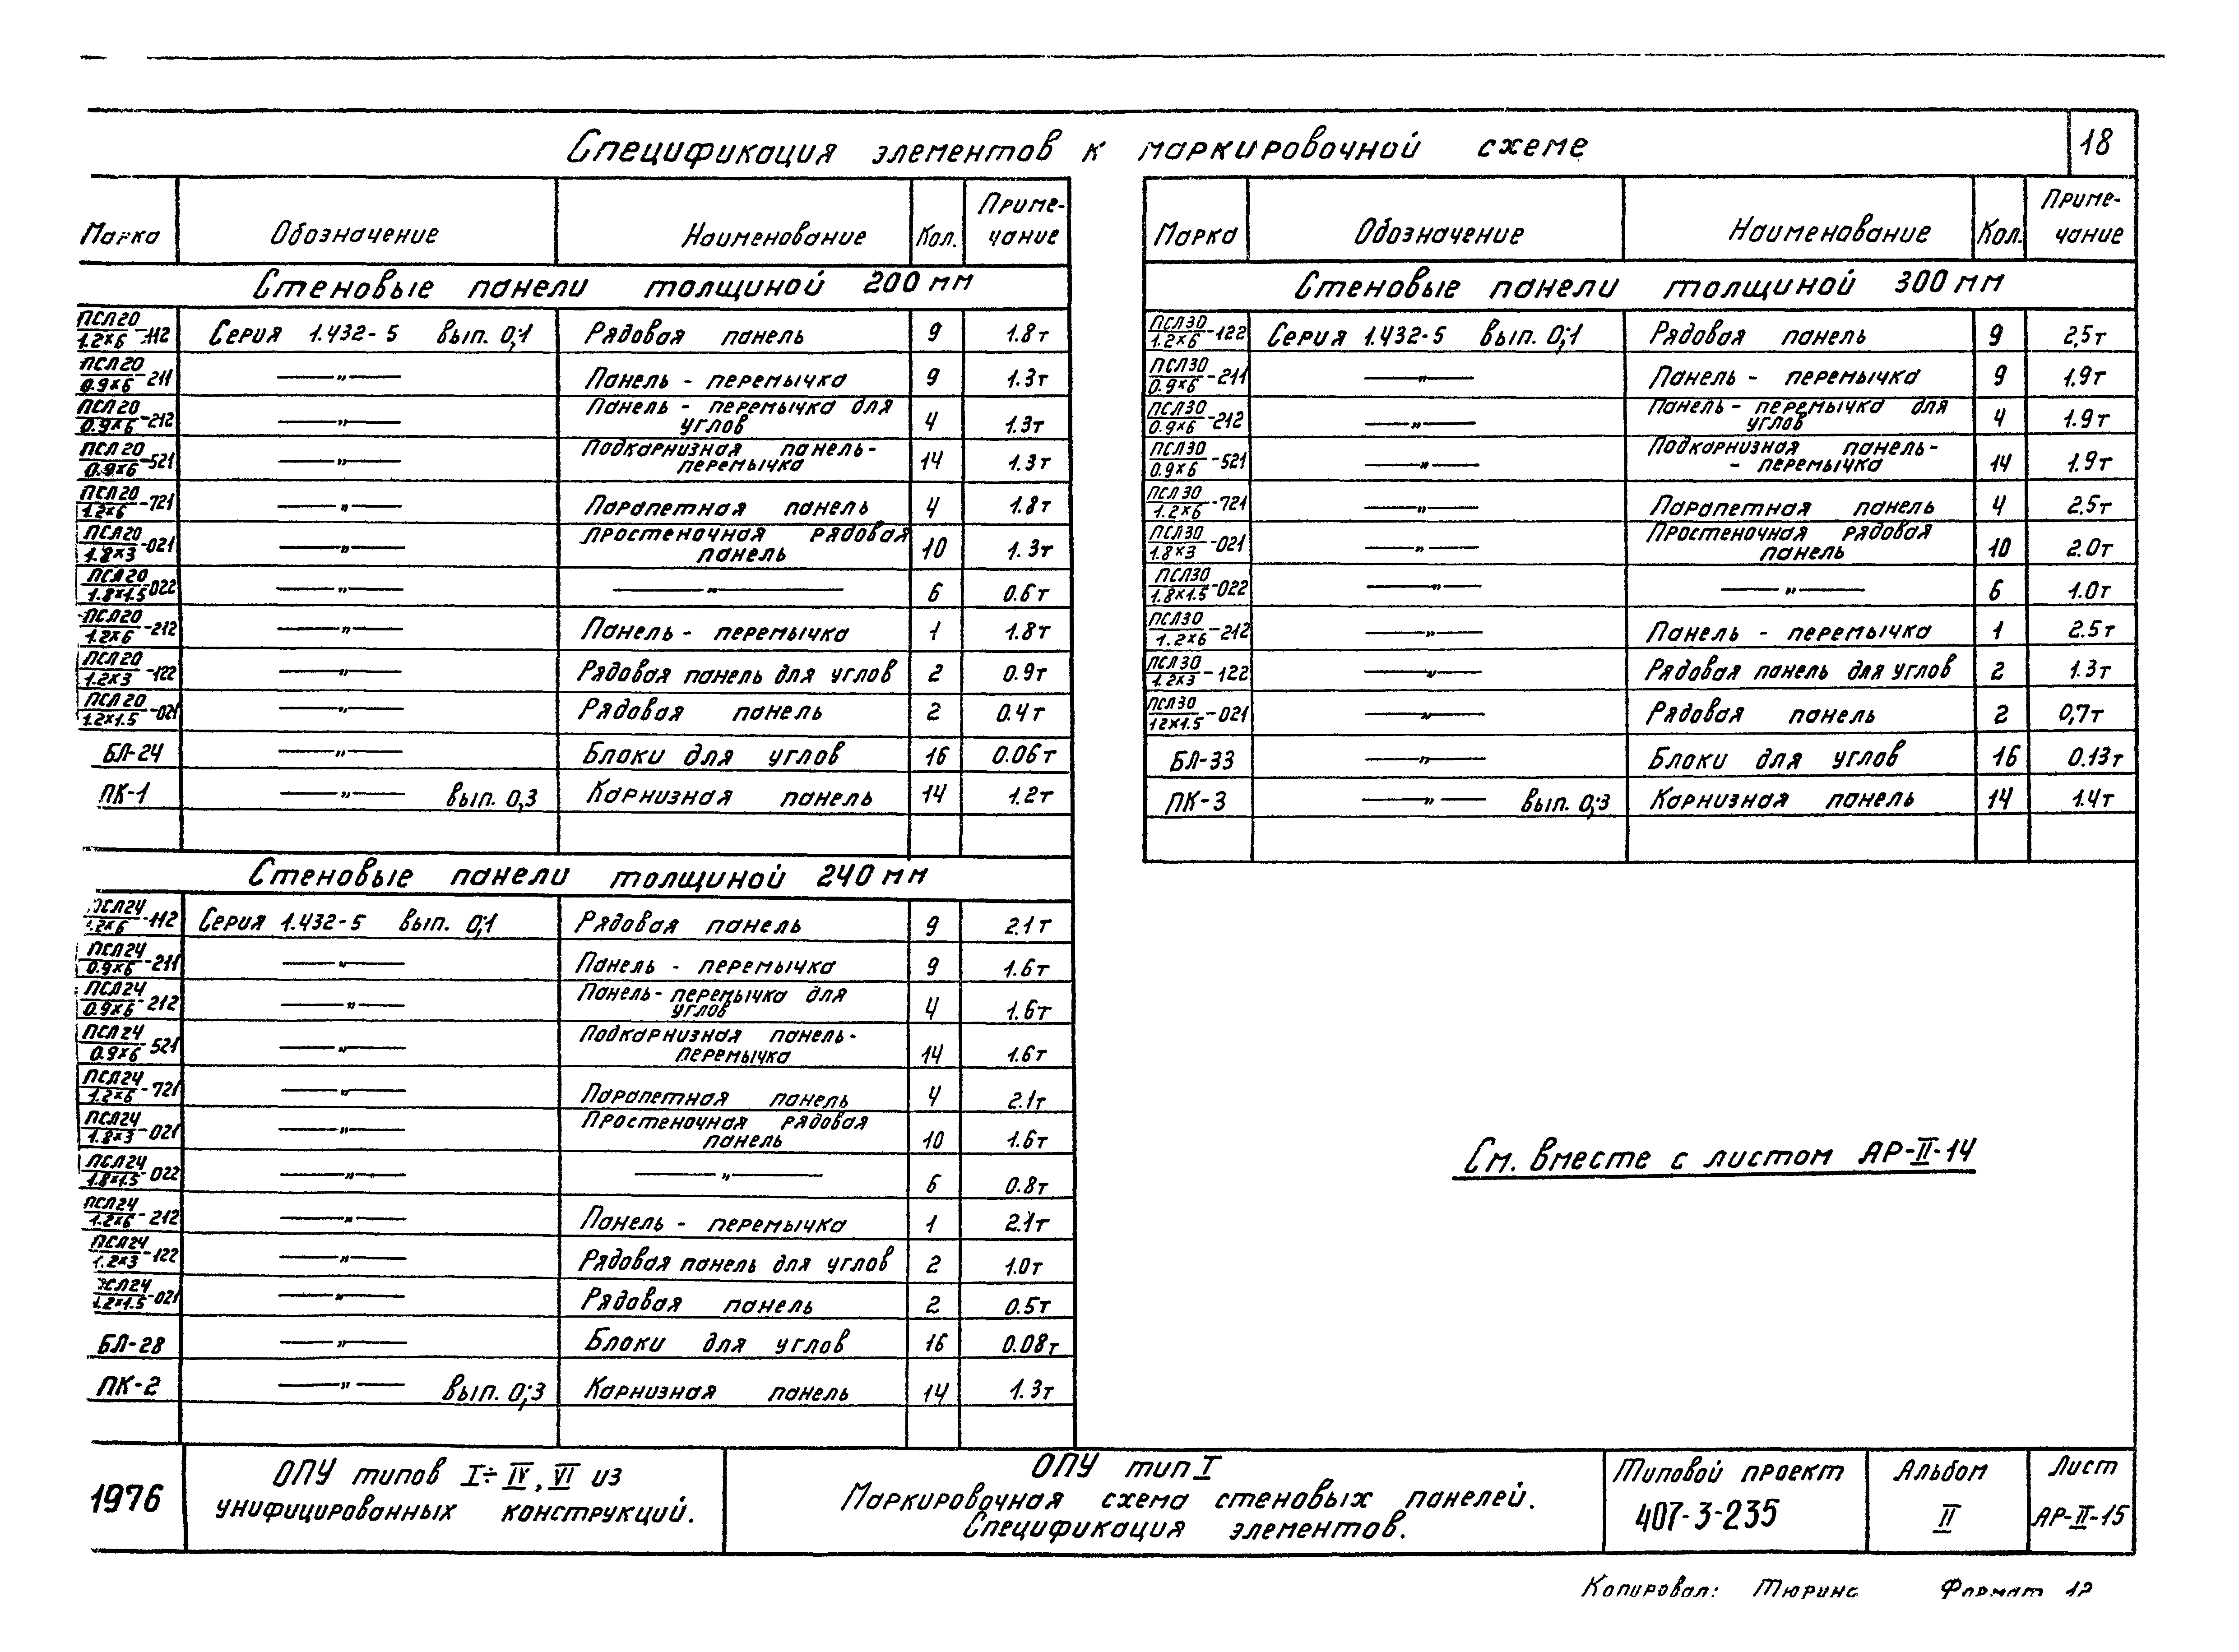 18
Спецификация элементов к маркировочной схеме
Марка Обозначение Наименование Кол. Приме-чание
Стеновые панели толщиной 200 мм
ПСЛ20/1.2×6-112 Серия 1.432-5 вып. 0;1 Рядовая панель 9 1.8т
ПСЛ20/0.9×6-211 —„— Панель - перемычка 9 1.3т
ПСЛ20/0.9×6-212 —„— Панель - перемычка для углов 4 1.3т
ПСЛ20/0.9×6-521 —„— Подкарнизная панель-перемычка 14 1.3т
ПСЛ20/1.2×6-721 —„— Парапетная панель 4 1.8т
ПСЛ20/1.8×3-021 —„— Простеночная рядовая панель 10 1.3т
ПСЛ20/1.8×1.5-022 —„— —„— 6 0.6т
ПСЛ20/1.2×6-212 —„— Панель - перемычка 1 1.8т
ПСЛ20/1.2×3-122 —„— Рядовая панель для углов 2 0.9т
ПСЛ20/1.2×1.5-021 —„— Рядовая панель 2 0.4т
БЛ-24 —„— Блоки для углов 16 0.06т
ПК-1 —„— вып. 0;3 Карнизная панель 14 1.2т
Стеновые панели толщиной 240 мм
ПСЛ24/1.2×6-112 Серия 1.432-5 вып. 0;1 Рядовая панель 9 2.1т
ПСЛ24/0.9×6-211 —„— Панель - перемычка 9 1.6т
ПСЛ24/0.9×6-212 —„— Панель-перемычка для углов 4 1.6т
ПСЛ24/0.9×6-521 —„— Подкарнизная панель-перемычка 14 1.6т
ПСЛ24/1.2×6-721 —„— Парапетная панель 4 2.1т
ПСЛ24/1.8×3-021 —„— Простеночная рядовая панель 10 1.6т
ПСЛ24/1.8×1.5-022 —„— —„— 6 0.8т
ПСЛ24/1.2×6-212 —„— Панель - перемычка 1 2.1т
ПСЛ24/1.2×3-122 —„— Рядовая панель для углов 2 1.0т
ПСЛ24/1.2×1.5-021 —„— Рядовая панель 2 0.5т
БЛ-28 —„— Блоки для углов 16 0.08т
ПК-2 —„— вып. 0;3 Карнизная панель 14 1.3т
Марка Обозначение Наименование Кол. Приме-чание
Стеновые панели толщиной 300 мм
ПСЛ30/1.2×6-122 Серия 1.432-5 вып. 0;1 Рядовая панель 9 2,5т
ПСЛ30/0.9×6-211 —„— Панель - перемычка 9 1.9т
ПСЛ30/0.9×6-212 —„— Панель - перемычка для углов 4 1.9т
ПСЛ30/0.9×6-521 —„— Подкарнизная панель- - перемычка 14 1.9т
ПСЛ30/1.2×6-721 —„— Парапетная панель 4 2.5т
ПСЛ30/1.8×3-021 —„— Простеночная рядовая панель 10 2.0т
ПСЛ30/1.8×1.5-022 —„— —„— 6 1.0т
ПСЛ30/1.2×6-212 —„— Панель - перемычка 1 2.5т
ПСЛ30/1.2×3-122 —„— Рядовая панель для углов 2 1.3т
ПСЛ30/12×1.5-021 —„— Рядовая панель 2 0,7т
БЛ-33 —„— Блоки для углов 16 0.13т
ПК-3 —„— вып. 0;3 Карнизная панель 14 1.4т
См. вместе с листом АР-II-14
1976
ОПУ типов I÷IV, VI из
унифицированных конструкций.
ОПУ тип I
Маркировочная схема стеновых панелей.
Спецификация элементов.
Типовой проект
407-3-235
Альбом
II
Лист
АР-II-15
Копировал: Тюрина Формат 12